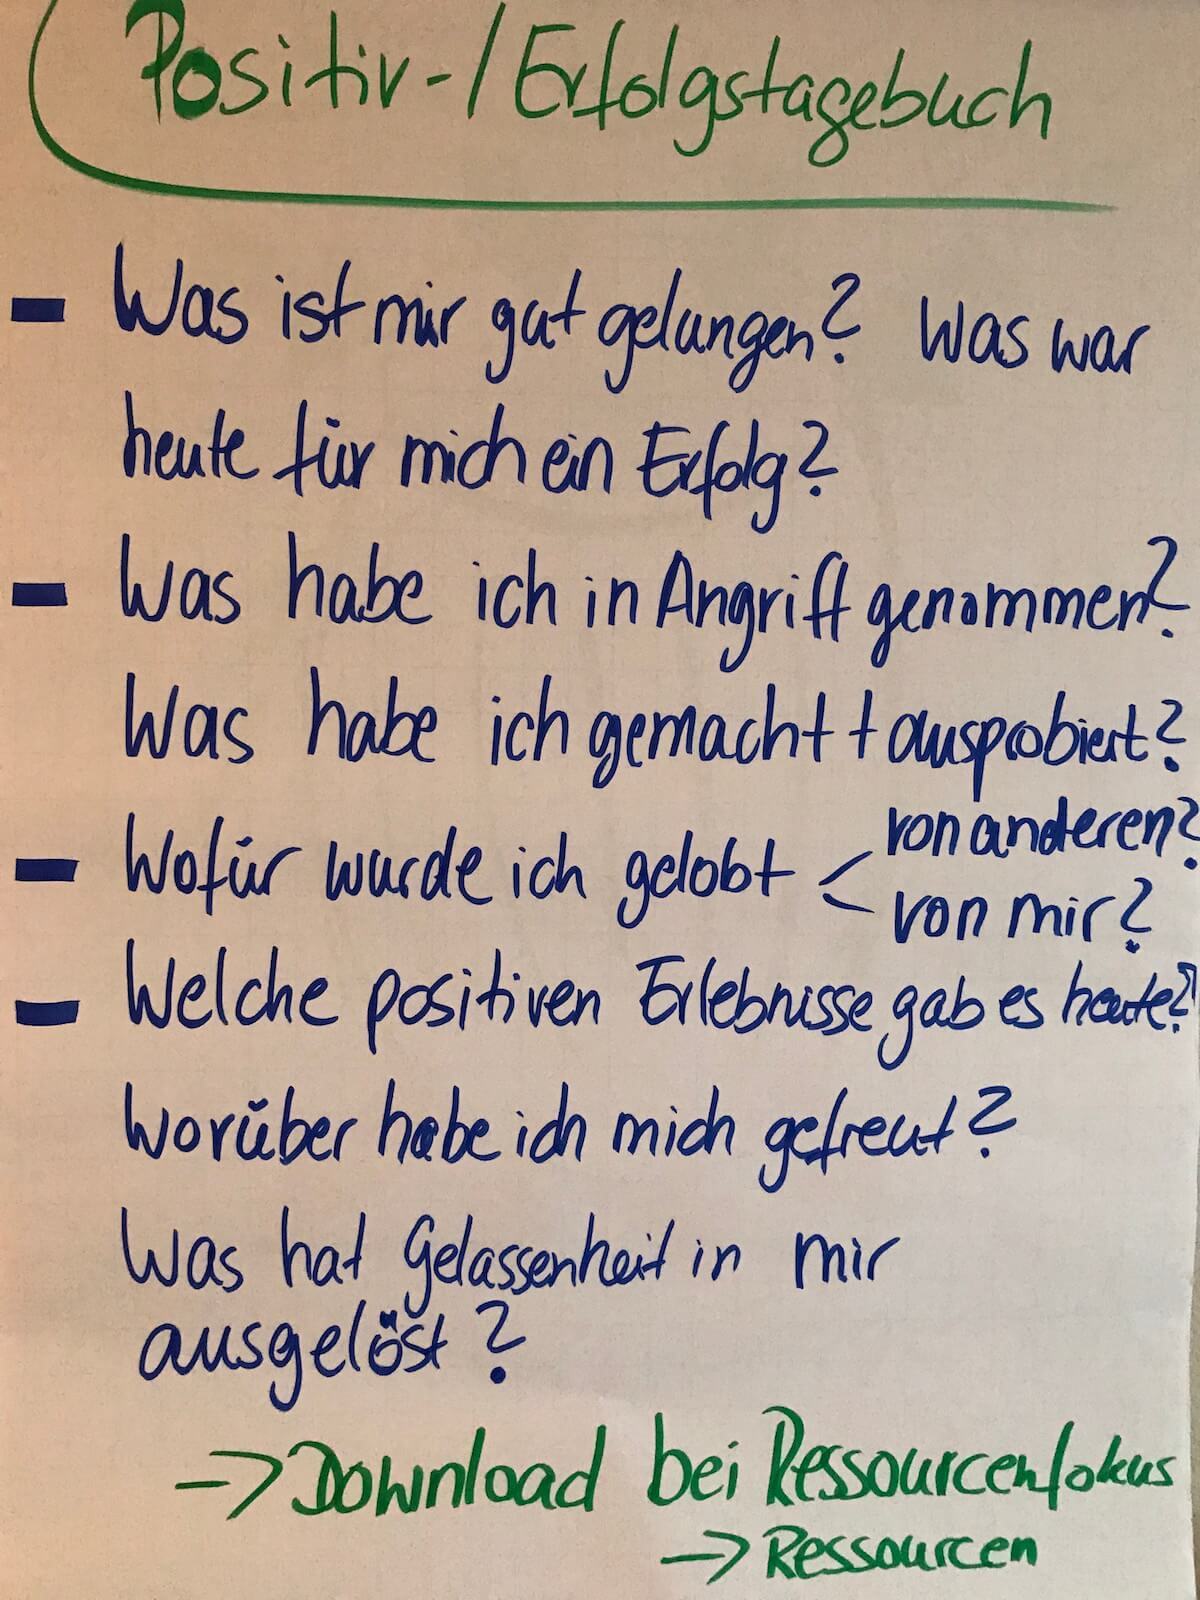 Positiv-/Erfolgstagebuch
- Was ist mir gut gelungen? Was war
heute für mich ein Erfolg?
- Was habe ich in Angriff genommen?
Was habe ich gemacht + ausprobiert?
- Wofür wurde ich gelobt < von anderen?
von mir?
- Welche positiven Erlebnisse gab es heute?
Worüber habe ich mich gefreut?
Was hat Gelassenheit in mir
ausgelöst?
-> Download bei Ressourcenfokus
-> Ressourcen